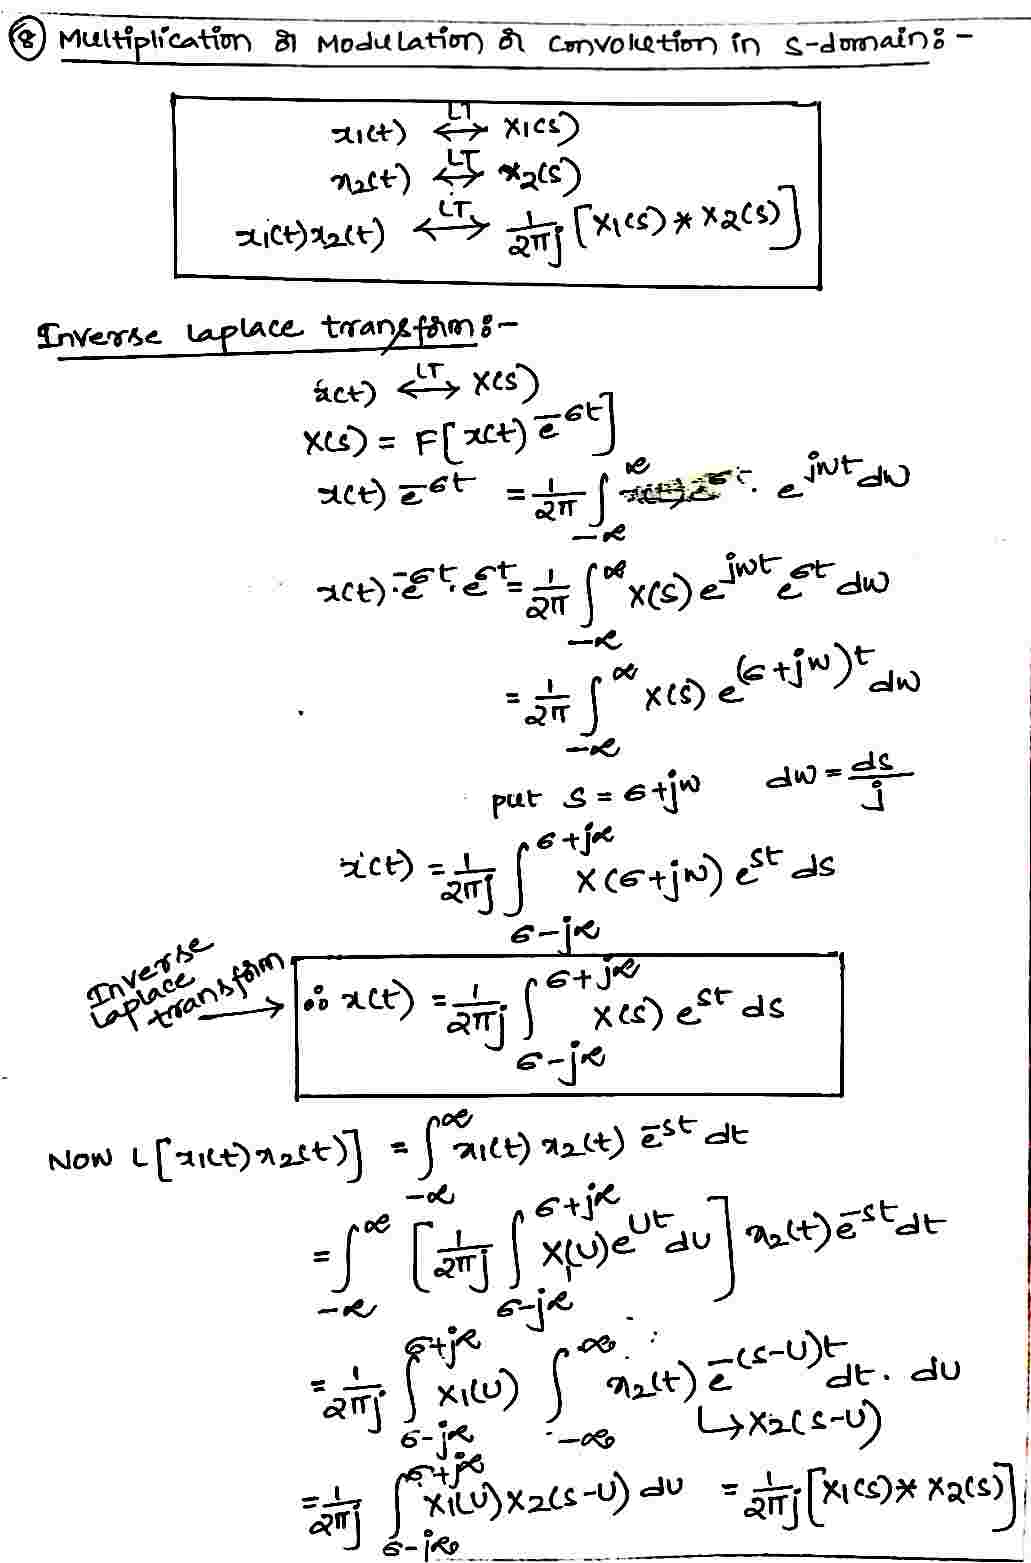 ⑧ Multiplication or Modulation or Convolution in s-domain:-
x1(t) ⟷LT X1(s)
x2(t) ⟷LT X2(s)
x1(t)x2(t) ⟷LT 1/2πj [X1(s) * X2(s)]
Inverse Laplace transform:-
x(t) ⟷LT X(s)
X(s) = F[x(t) e^-σt]
x(t) e^-σt = 1/2π ∫_-∞^∞ . e^jwt dw
x(t).e^-σt.e^σt = 1/2π ∫_-∞^∞ X(s) e^jwt e^σt dw
= 1/2π ∫_-∞^∞ X(s) e^(σ+jw)t dw
put s = σ+jw dw = ds/j
x(t) = 1/2πj ∫_σ-j∞^σ+j∞ X(σ+jw) e^st ds
Inverse
Laplace
transform →
∴ x(t) = 1/2πj ∫_σ-j∞^σ+j∞ X(s) e^st ds
Now L[x1(t)x2(t)] = ∫_-∞^∞ x1(t) x2(t) e^-st dt
= ∫_-∞^∞ [1/2πj ∫_σ-j∞^σ+j∞ X1(U)e^Ut dU] x2(t)e^-st dt
= 1/2πj ∫_σ-j∞^σ+j∞ X1(U) ∫_-∞^∞ x2(t) e^-(s-U)t dt. dU
↳X2(s-U)
= 1/2πj ∫_σ-j∞^σ+j∞ X1(U)X2(s-U) dU = 1/2πj [X1(s)* X2(s)]